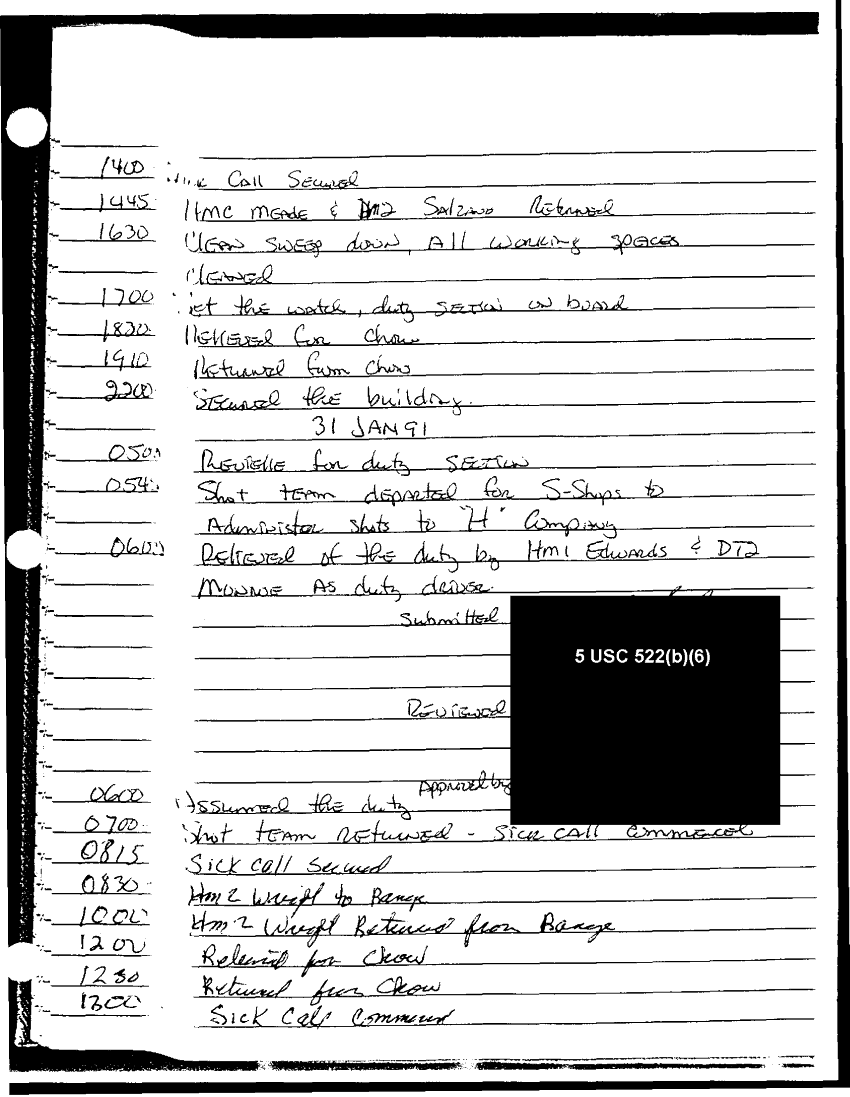 1400 Sick Call Secured
1445 HMC Meade & HM2 Salzano Returned
1630 Clean Sweep down, All working spaces
Cleaned
1700 Set the watch, duty Section on board
1820 Relieved for Chow
1910 Returned from Chow
2200 Secured the building
31 JAN 91
0500 Reveille for duty Section
054 Shot team departed for S-Shops to
Administer shots to "H" Company
0600 Relieved of the duty by HM1 Edwards & DT2
Monroe As duty driver.
Submitted
5 USC 522(b)(6)
Reviewed
Approved by
0600 Assumed the duty
0700 Shot team Returned - Sick call Commenced
0815 Sick call Secured
0830 HM2 Wright to Range
1000 HM2 Wright Returned from Range
1200 Relieved for Chow
1230 Returned from Chow
1300 Sick Call Commenced